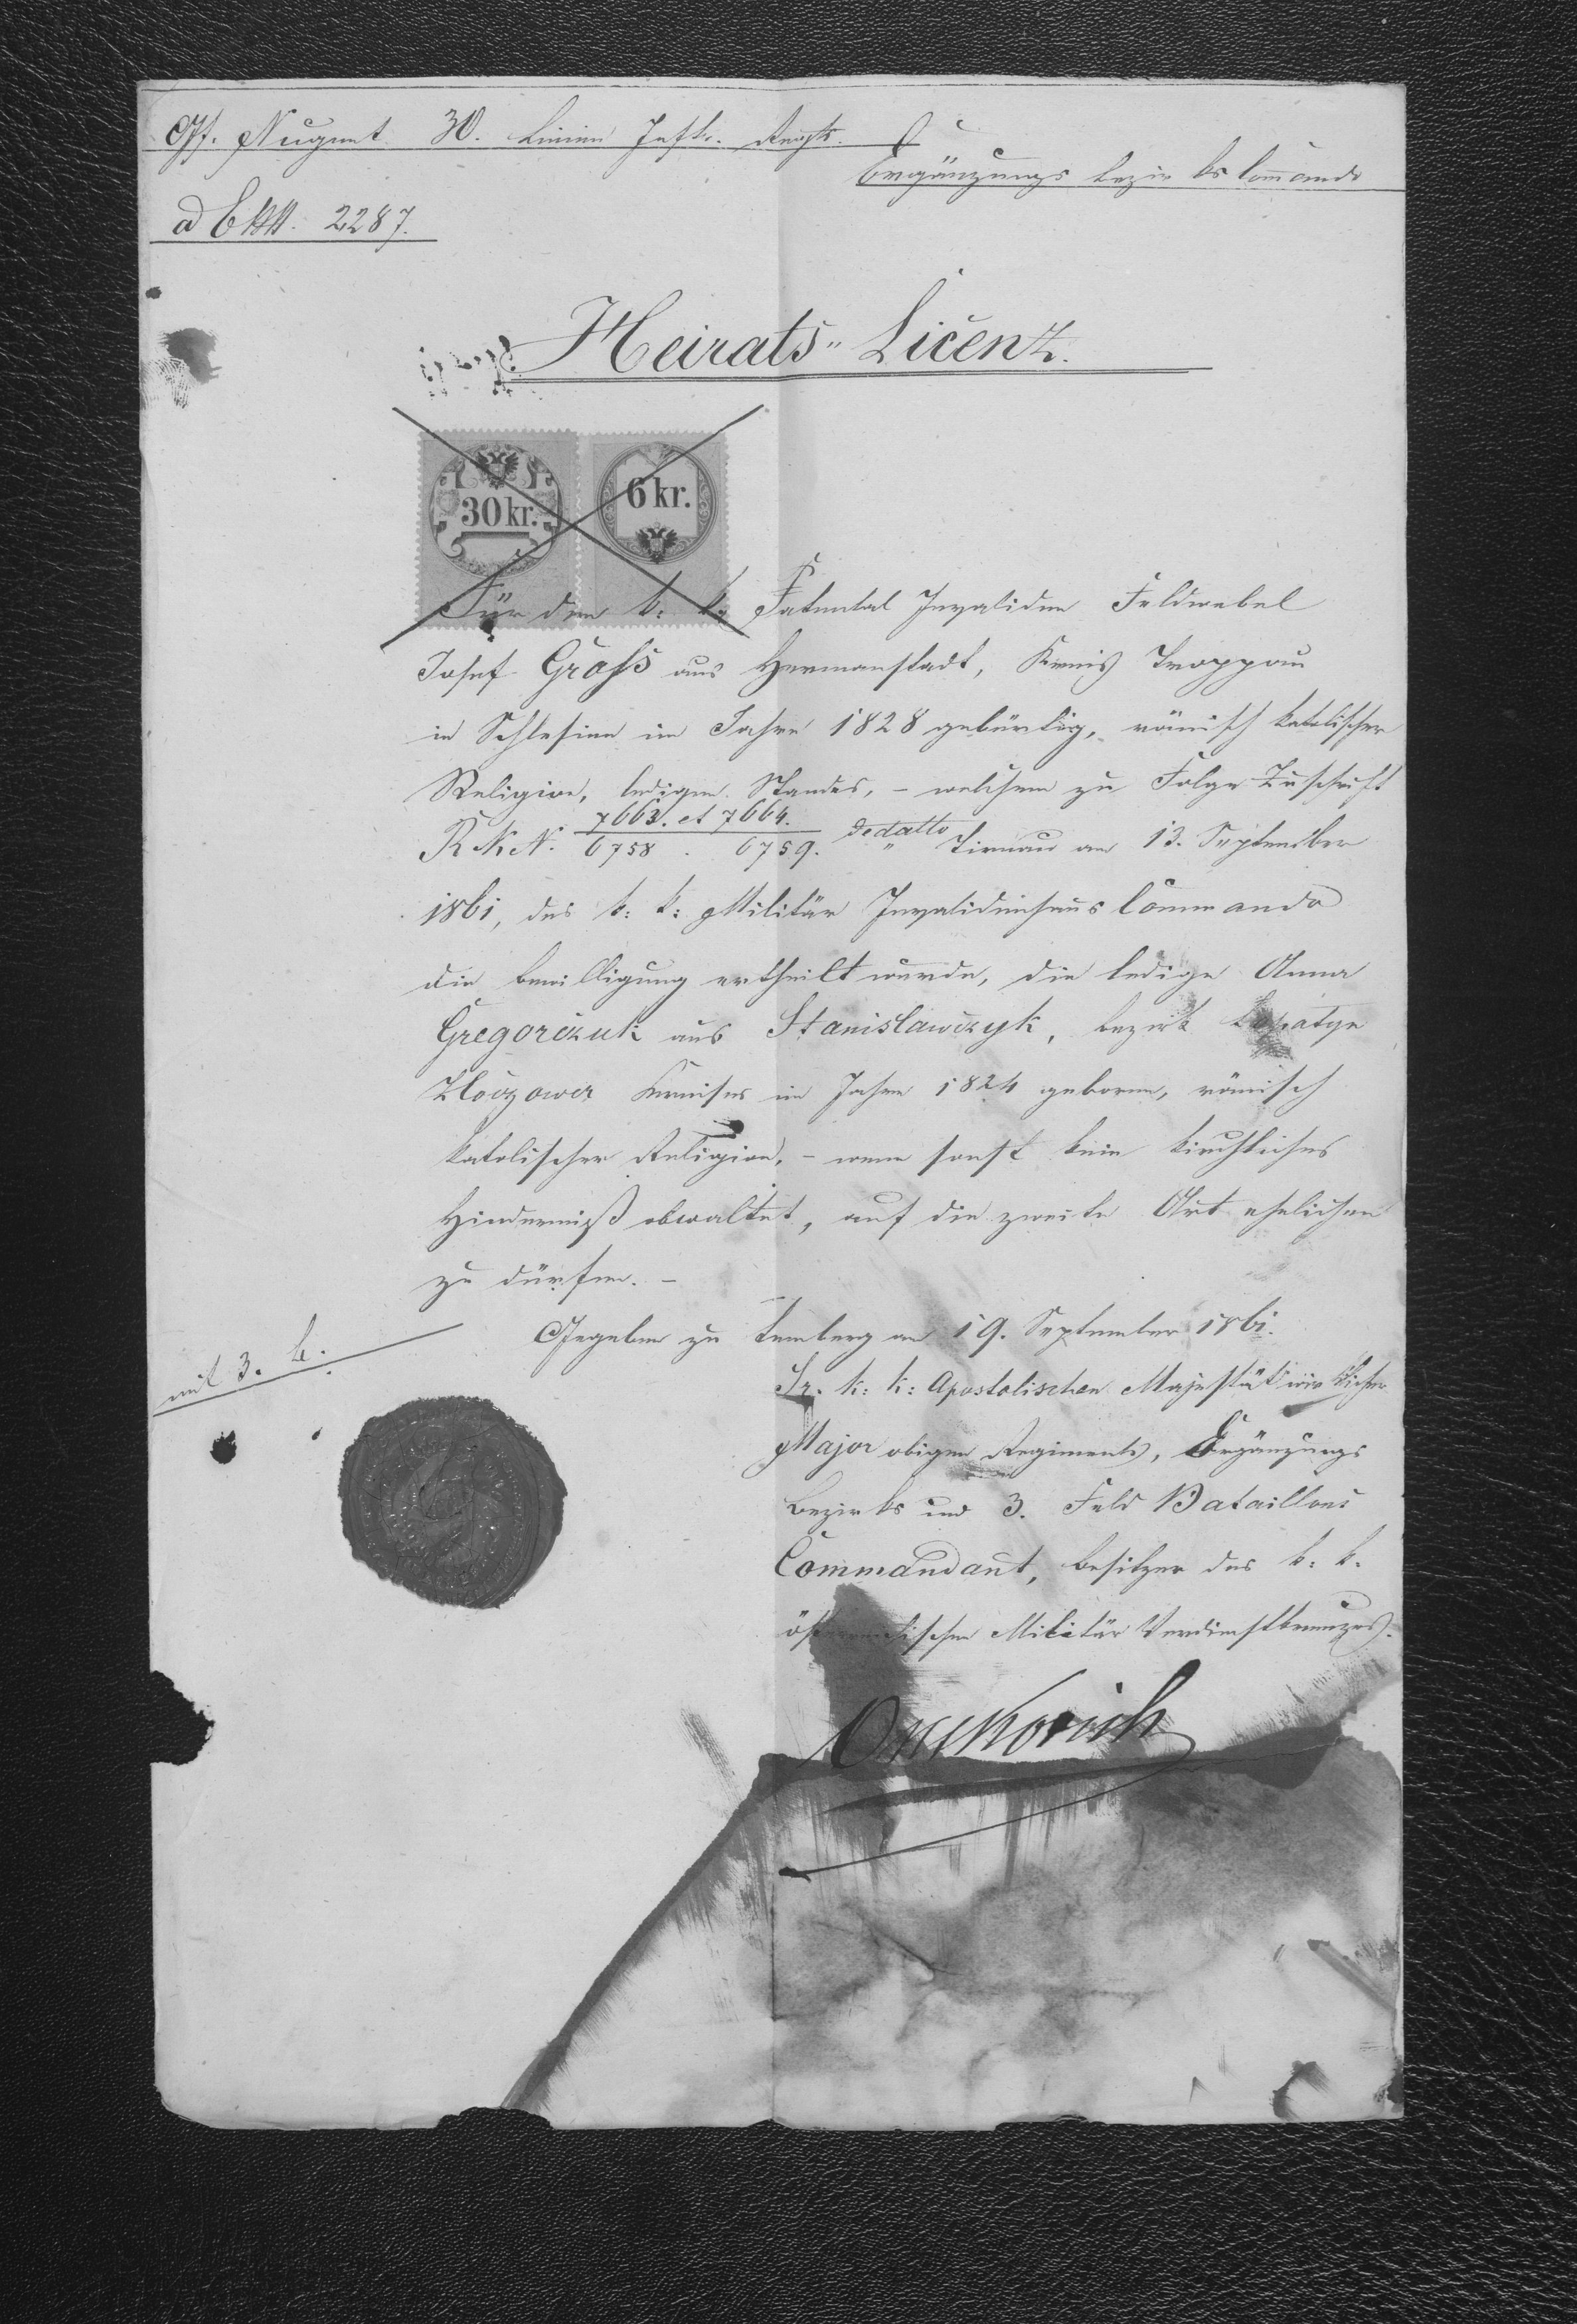 Gf. Nugent 30. Linien Inftr. Regts.
Ergänzungs bezirks Commando
ad E 2287.
Heirats-Licenz.
30 kr.
6 kr.
Für den k: k: Patental Invaliden Feldwebel
Josef Groß aus Hermanstadt, Kreis Troppau
in Schlesien im Jahre 1828 gebürtig, römisch katolischer
Religion, ledigen Standes, – welchem zu Folge Zuschrift
R K N. 7663. et 7664. / 6758 . 6759. dedatto Tirnau am 13. September
1861, des k: k: Militär Invalidenhaus Commando
die bewilligung ertheilt wurde, die ledige Anna
Gregorczuk aus Stanislawczyk, bezirk Lopatyn
Zloczower Kreises im Jahre 1824 geboren, römisch
katolischer Religion, – wenn sonst kein kirchliches
Hinderniß obwaltet, auf die zweite Art ehelichen
zu dürfen. –
Gegeben zu Lemberg am 19. September 1861.
mit 3. b.
Sr. k: k: Apostolischen Majestät wirklicher
Major obigen Regiments, Ergänzungs
Bezirks und 3. Feld Bataillons
Commandant, besitzer des k: k.
österreichischen Militär Verdienstkreuzes.